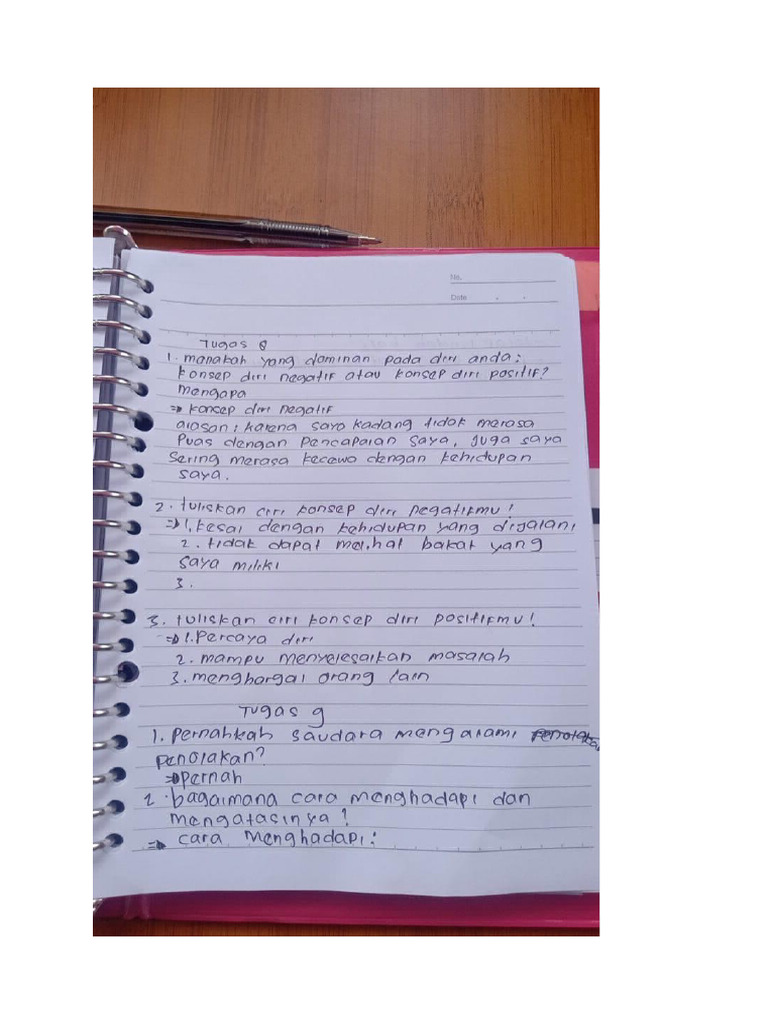 No.
Date
Tugas 8
1. manakah yang dominan pada diri anda:
konsep diri negatif atau konsep diri positif?
mengapa
=> konsep diri negatif
alasan: karena saya kadang tidak merasa
Puas dengan Pencapaian saya, juga saya
Sering merasa kecewa dengan kehidupan
saya.
2. tuliskan ciri konsep diri negatifmu!
=> 1. kesal dengan kehidupan yang dijalani
2. tidak dapat melihat bakat yang
saya miliki
3.
3. tuliskan ciri konsep diri positifmu!
=> 1. Percaya diri
2. mampu menyelesaikan masalah
3. menghargai orang lain
Tugas 9
1. Pernahkah saudara mengalami
penolakan?
=> pernah
2. bagaimana cara menghadapi dan
mengatasinya?
=> cara menghadapi: